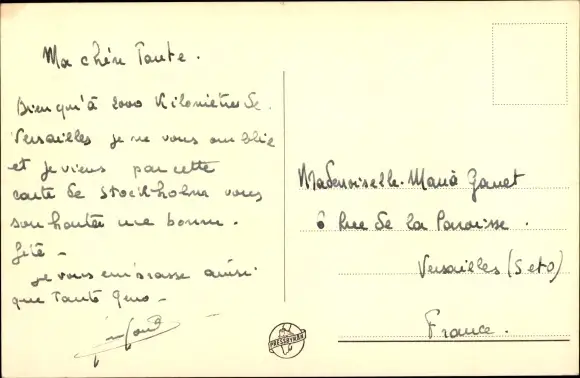 Ma chère Tante.
Bien qu'à 2000 Kilomètres de
Versailles je ne vous oublie
et je viens par cette
carte de Stockholm vous
souhaiter une bonne
fête -
je vous embrasse ainsi
que Tante
Mademoiselle Maria Ganet
6 Rue de la Paroisse.
Versailles (S et O)
France.
PRESSBYRÅN